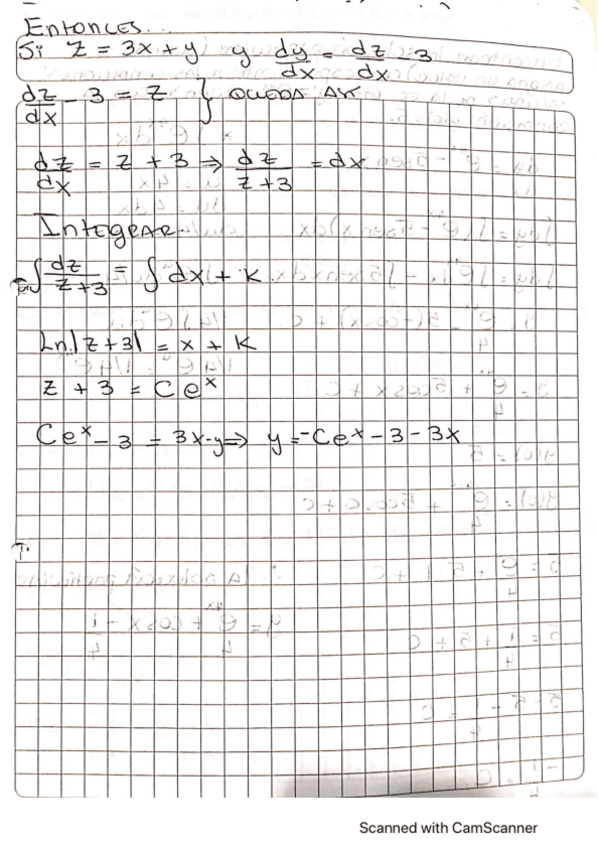 Entonces...
Si z = 3x + y y dy/dx = dz/dx - 3
dz/dx - 3 = z } QUEDA ASI
dz/dx = z + 3 ⇒ dz/z+3 = dx
Integrar.
∫ dz/z+3 = ∫ dx + k
Ln|z+3| = x + k
z + 3 = C eˣ
Ceˣ - 3 = 3x-y ⇒ y = -Ceˣ - 3 - 3x
Scanned with CamScanner